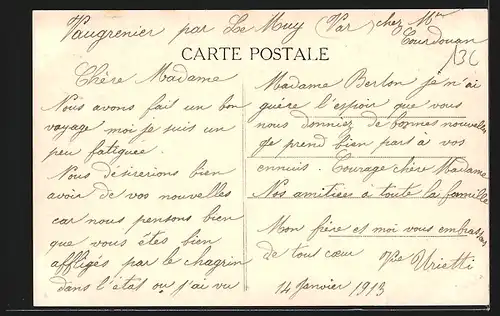 Vaugrenier par Le Muy (Var) chez Mme
Courdouan
136
CARTE POSTALE
Chère Madame
Nous avons fait un bon
voyage moi je suis un
peu fatiguée.
Nous désirerions bien
avoir de vos nouvelles
car nous pensons bien
que vous êtes bien
affligés par le chagrin
dans l'état ou j'ai vu
Madame Berlon je n'ai
guère l'espoir que vous
nous donniez de bonnes nouvelles
je prend bien part à vos
ennuis. Courage chère Madame
Nos amitiées à toute la famille
Mon frère et moi vous embrassons
de tout cœur Vve Urietti
14 Janvier 1913